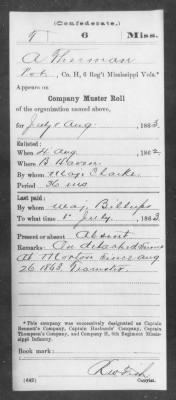 (Confederate.)
T 6 Miss.
A Thurman
Pvt., Co. H, 6 Reg't Mississippi Vols.*
Appears on
Company Muster Roll
of the organization named above,
for July & Aug, 1863.
Enlisted:
When 4 Aug, 1862.
Where B Haven
By whom Maj. Clarke
Period
Last paid:
By whom Maj. Billups
To what time 1st July, 1863.
Present or absent Absent
Remarks: On detached
At Morton since aug
26 1863. Teamster.
*This company was successively designated as Captain
Bennett's Company, Captain Company, Captain
Thompson's Company, and Company H, 6th Regiment Missis-
sippi Infantry.
Book mark:
(642) Copyist.